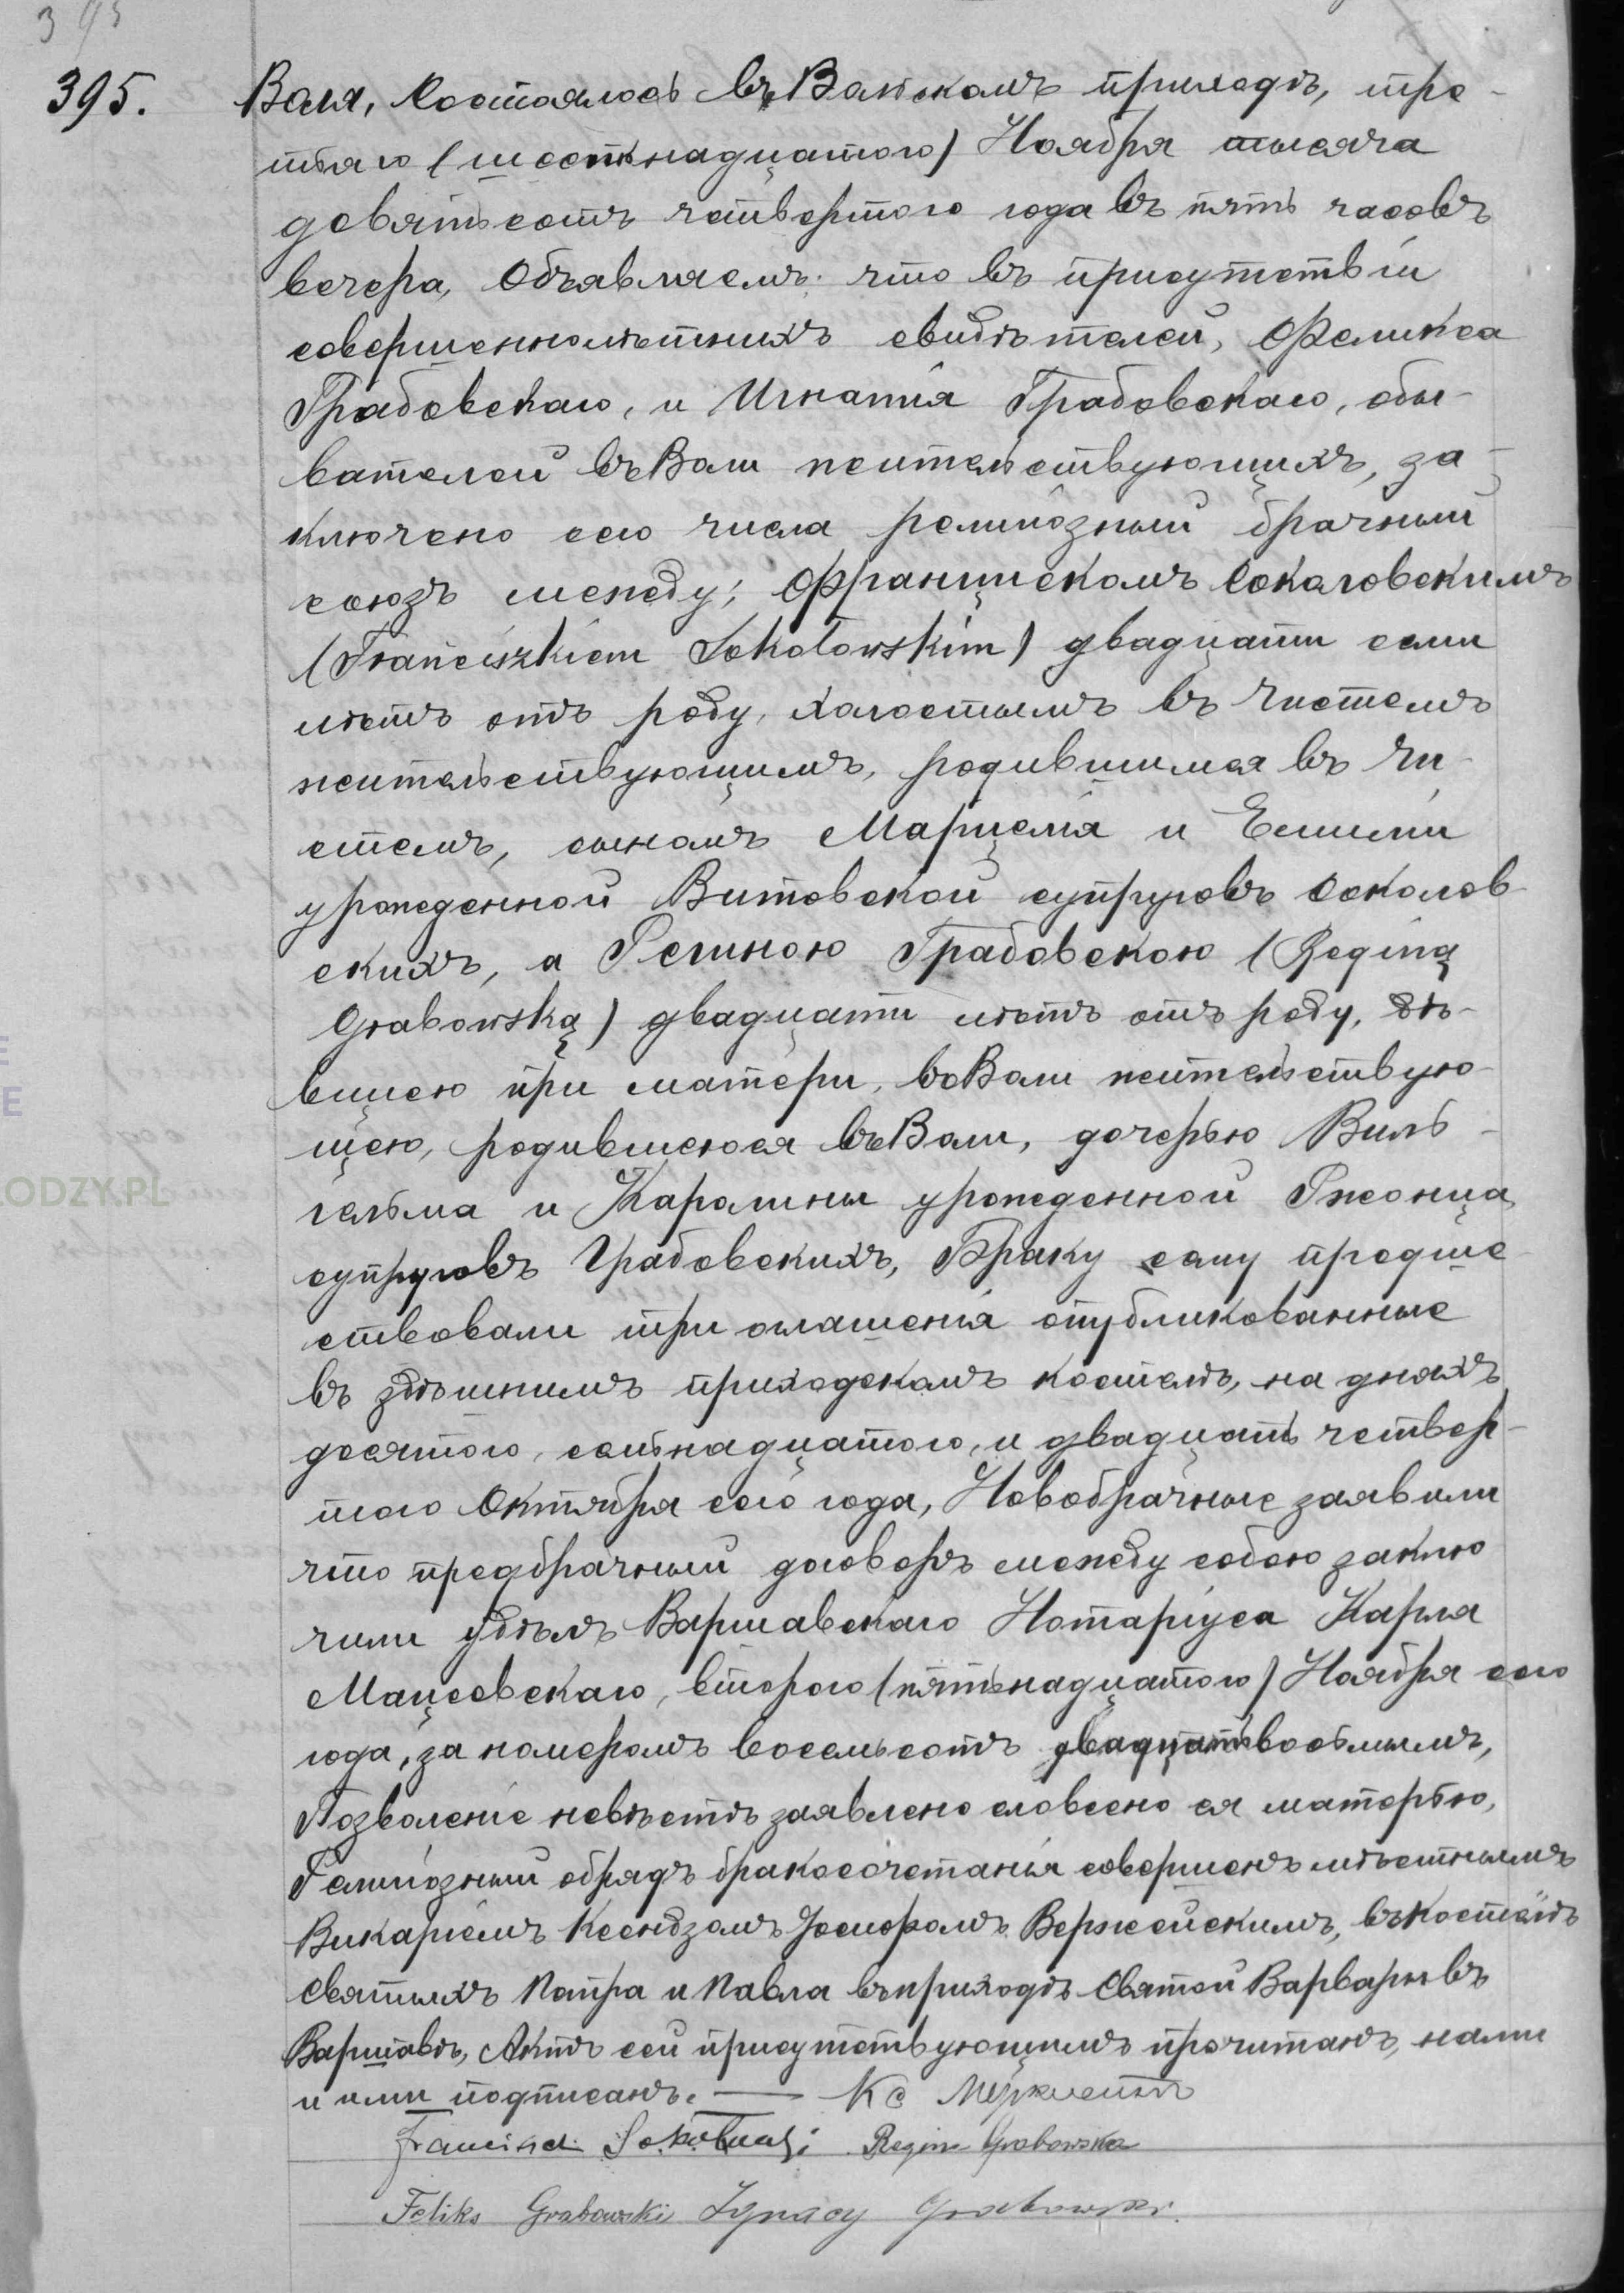 395
395. Воля, Состоялось въ Вольскомъ приходѣ, тре-
тьяго (шестнадцатого) Ноября тысяча
девятьсотъ четвертого года въ пять часовъ
вечера, Объявляемъ: что въ присутствіи
совершеннолѣтнихъ свидѣтелей, Феликса
Грабовскаго, и Игнатія Грабовскаго, обы-
вателей въ Воли жительствующихъ, за-
ключено сего числа религіозный брачный
союзъ между; Францискомъ Соколовскимъ
(Franciszkiem Sokołowskim) двадцати семи
лѣтъ отъ роду, холостымъ въ Чистемъ
жительствующимъ, родившимся въ Чи-
стемъ, сыномъ Марцелія и Емиліи
урожденной Витовской супруговъ Соколов-
скихъ, а Региною Грабовскою (Reginą
Grabowską) двадцати лѣтъ отъ роду, дѣ-
вицею при матери, въ Воли жительствую-
щею, родившеюся въ Воли, дочерью Виль-
гельма и Каролины урожденной Ржонца
супруговъ Грабовскихъ, Браку сему предше-
ствовали три оглашенія опубликованные
въ здѣшнимъ приходскомъ костелѣ, на дняхъ
десятого, семнадцатого, и двадцать четвер-
того Октября сего года, Новобрачные заявили
что предбрачный договоръ между собою заклю-
чили у дѣлъ Варшавскаго Нотаріуса Карла
Мацеевскаго, второго (пятьнадцатого) Ноября сего
года, за номеромъ восемьсотъ двадцать восьмымъ,
Позволеніе невѣстѣ заявлено словесно ея матерью,
Религіозный обрядъ бракосочетанія совершенъ мѣстнымъ
Викаріемъ Ксендзомъ Іосифомъ Вержейскимъ, въ костелѣ
Святыхъ Петра и Павла въ приходѣ Святой Варвары въ
Варшавѣ, Актъ сей присутствующимъ прочитанъ, нами
и ими подписанъ. — Кс
Sokołowski Regina Grabowska
Feliks Grabowski Ignacy Grabowski.
ODZY.PL